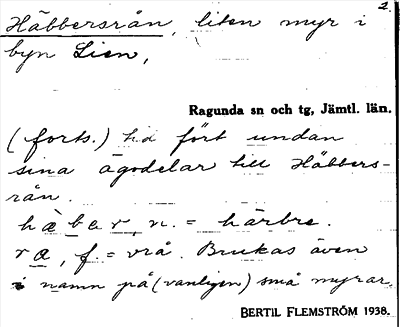 2.
Häbbersrån, liten myr i
byn Lien,
Ragunda sn och tg, Jämtl. län.
(forts.) ha fört undan
sina ägodelar till Häbbers-
rån.
hæ̀bar, n. = härbre.
ra, f. = vrå. Brukas även
i namn på (vanligen) små myrar.
BERTIL FLEMSTRÖM 1938.